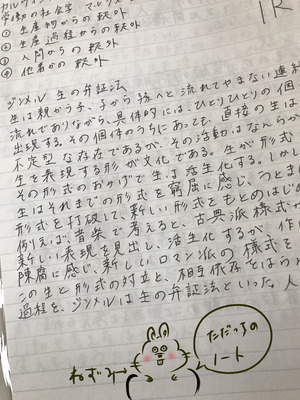 労働の社会学 マルクス
① 生産物からの疎外
② 生産過程からの疎外
③ 人間からの疎外
④ 他者からの疎外
ジンメル 生の弁証法
生は親から子、子から孫へと流れてやまない連続
流れでありながら、具体的には、ひとりひとりの個
出現する。その個体のうちにあっても、直接の生は
不定型な存在であるが、その活動はなんらか
生を表現する形が文化である。生が形式
その形式のおかげで生は活性化する。しかし
生はそれまでの形式を窮屈に感じ、つときの
形式を打破して、新しい形式をもとめはじめ
例えば、音楽で考えると、古典派様式が
新しい表現を見出し、活生化するが、作
陳腐に感じ、新しいロマン派の様式を
この生と形式の対立と、相互依存をはらん
過程を、ジンメルは生の弁証法といった。人
ねずみ→
ただっちの
ノート